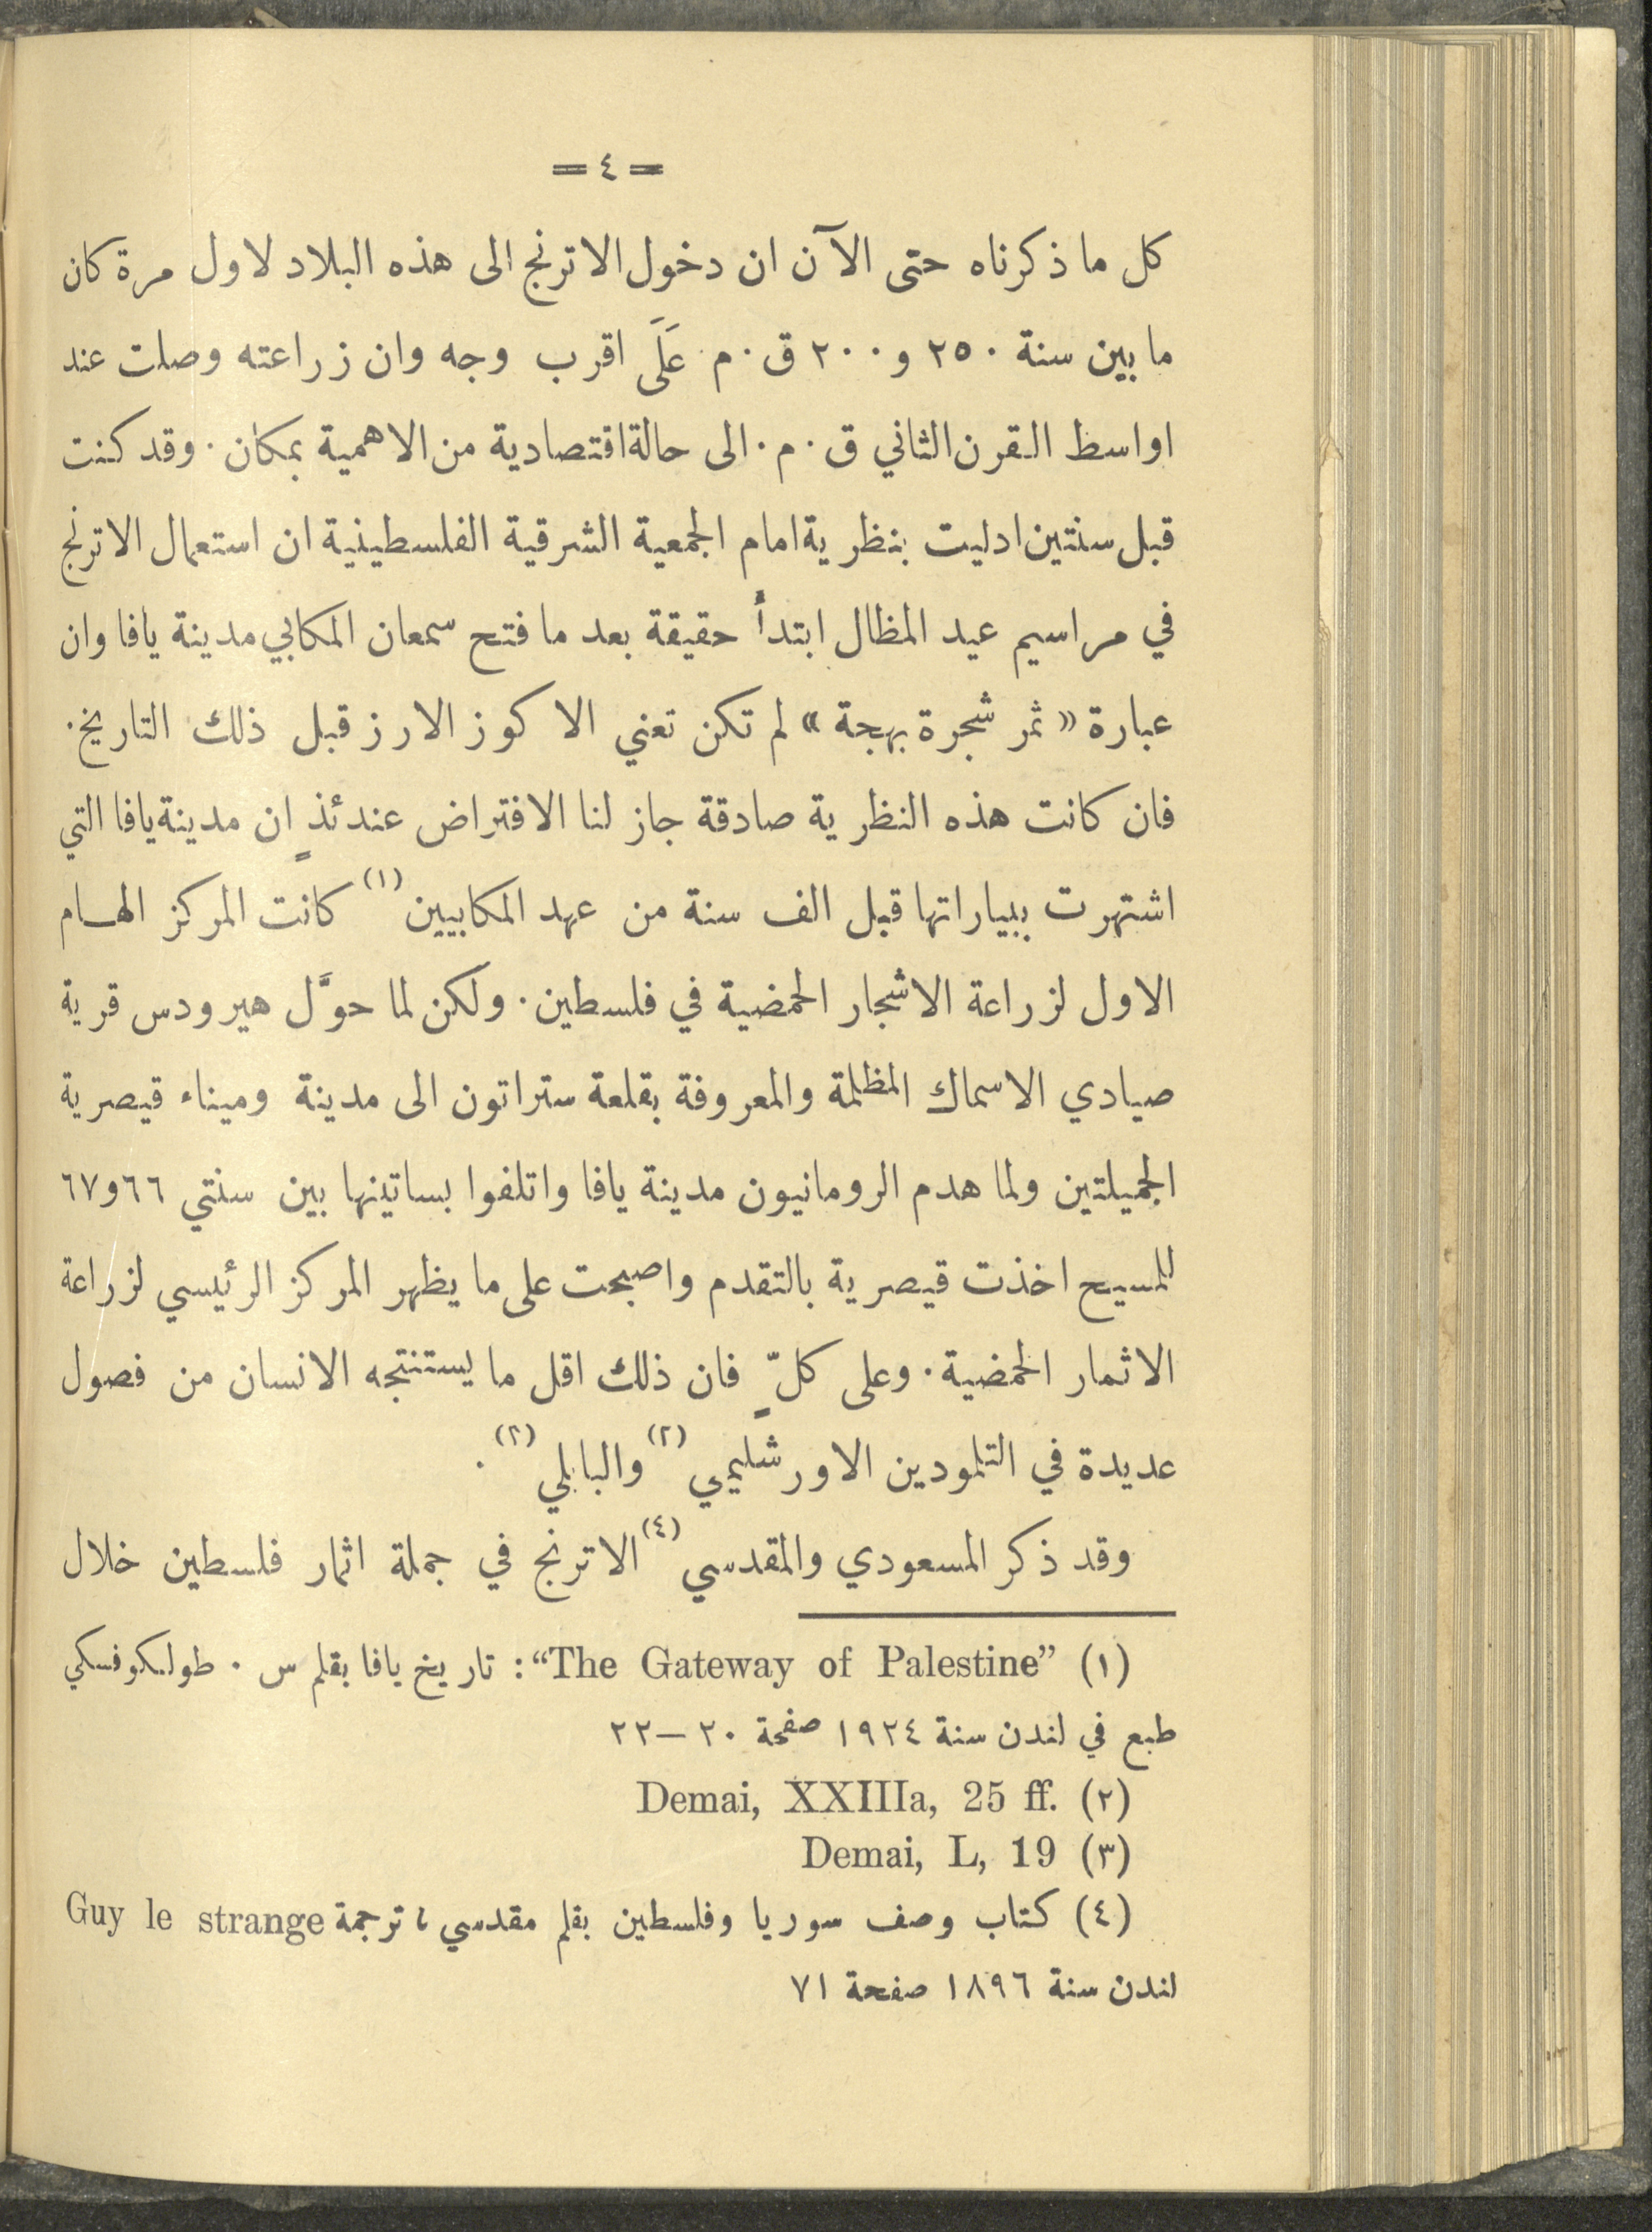 = ٤ =
كل ما ذكرناه حتى الآن ان دخول الاترنج الى هذه البلاد لاول مرة كان
ما بين سنة ٢٥٠ و ٢٠٠ ق . م . عَلَى اقرب وجه وان زراعته وصلت عند
اواسط القرن الثاني ق . م . الى حالة اقتصادية من الاهمية بمكان . وقد كنت
قبل سنتين ادليت بنظرية امام الجمعية الشرقية الفلسطينية ان استعمال الاترنج
في مراسيم عيد المظال ابتدأ حقيقة بعد ما فتح سمعان المكابي مدينة يافا وان
عبارة « ثمر شجرة بهجة » لم تكن تعني الا كوز الارز قبل ذلك التاريخ .
فان كانت هذه النظرية صادقة جاز لنا الافتراض عندئذٍ ان مدينة يافا التي
اشتهرت ببياراتها قبل الف سنة من عهد المكابيين (١) كانت المركز الهـام
الاول لزراعة الاشجار الحمضية في فلسطين . ولكن لما حوَّل هيرودس قرية
صيادي الاسماك المظلمة والمعروفة بقلعة ستراتون الى مدينة وميناء قيصرية
الجميلتين ولما هدم الرومانيون مدينة يافا واتلفوا بساتينها بين سنتي ٦٦و٦٧
للمسيح اخذت قيصرية بالتقدم واصبحت على ما يظهر المركز الرئيسي لزراعة
الاثمار الحمضية . وعلى كلّ ٍ فان ذلك اقل ما يستنتجه الانسان من فصول
عديدة في التلمودين الاورشليمي (٢) والبابلي (٢) .
وقد ذكر المسعودي والمقدسي (٤) الاترنج في جملة اثمار فلسطين خلال
(١) “The Gateway of Palestine” : تاريخ يافا بقلم س . طولكوفسكي
طبع في لندن سنة ١٩٢٤ صفحة ٢٠—٢٢
(٢) Demai, XXIIIa, 25 ff.
(٣) Demai, L, 19
(٤) كتاب وصف سوريا وفلسطين بقلم مقدسي ، ترجمة Guy le strange
لندن سنة ١٨٩٦ صفحة ٧١